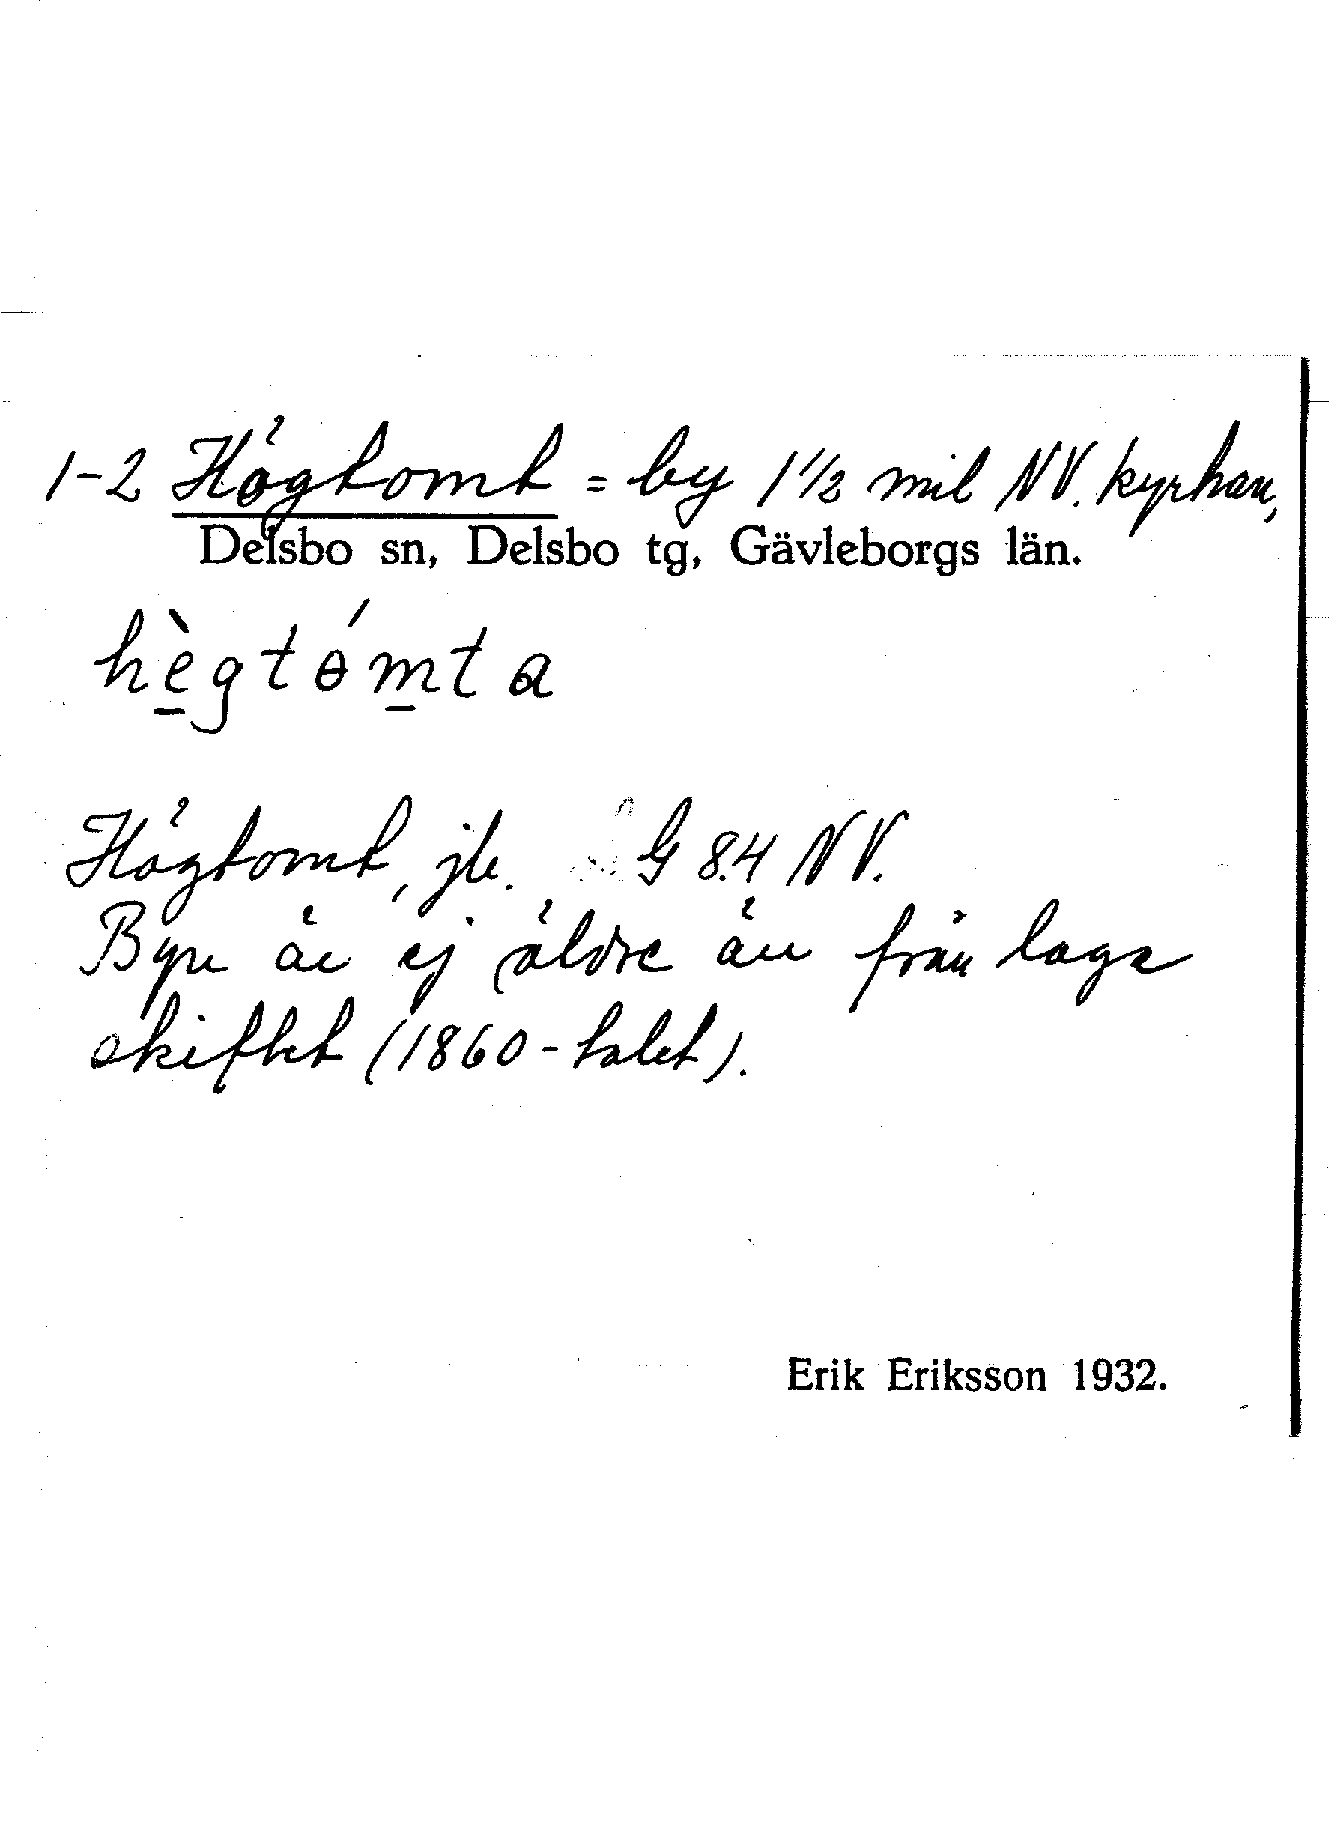 1-2 Högtomt = by 1 1/2 mil NV. kyrkan,
Delsbo sn, Delsbo tg, Gävleborgs län.
hègtɵ́mta
Högtomt, jb. G 8.4 NV.
Byn är ej äldre än från laga
skiftet (1860-talet).
Erik Eriksson 1932.